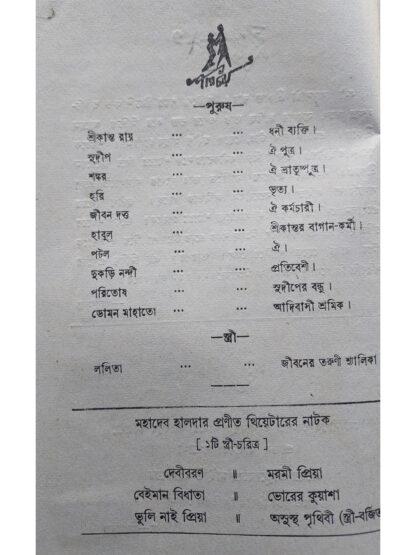 পরিচয়
—পুরুষ—
শ্রীকান্ত রায় ... ... ধনী ব্যক্তি।
সুদীপ ... ... ঐ পুত্র।
শঙ্কর ... ... ঐ ভ্রাতুষ্পুত্র।
হরি ... ... ভৃত্য।
জীবন দত্ত ... ... ঐ কর্মচারী।
হাবুল ... ... শ্রীকান্তর বাগান-কর্মী।
পটল ... ... ঐ।
দুকড়ি নন্দী ... ... প্রতিবেশী।
পরিতোষ ... ... সুদীপের বন্ধু।
ভোমন মাহাতো ... ... আদিবাসী শ্রমিক।
—স্ত্রী—
ললিতা ... ... জীবনের তরুণী শ্যালিকা
মহাদেব হালদার প্রণীত থিয়েটারের নাটক
[ ১টি স্ত্রী-চরিত্র ]
দেবীবরণ ॥ মরমী প্রিয়া
বেইমান বিধাতা ॥ ভোরের কুয়াশা
ভুলি নাই প্রিয়া ॥ অসুস্থ পৃথিবী (স্ত্রী-বর্জিত